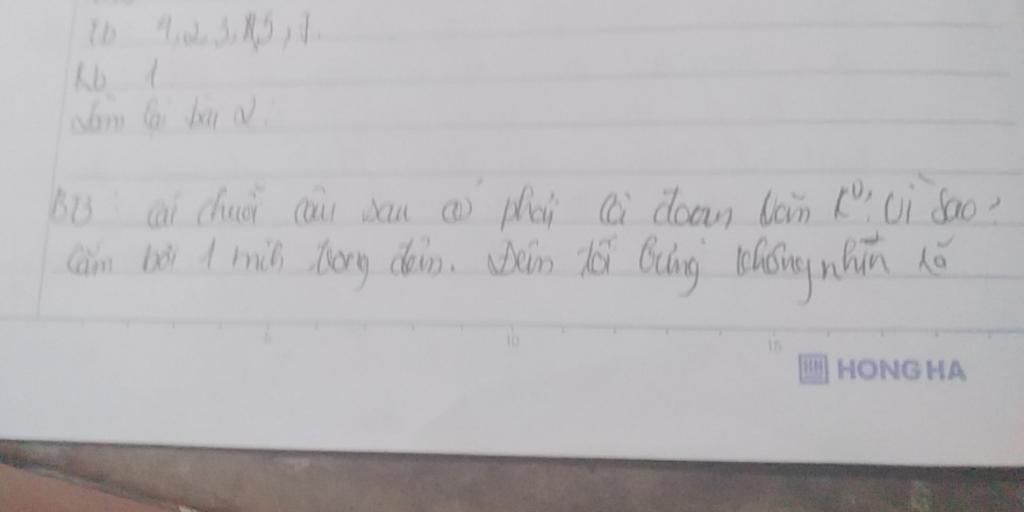 Tb 1,2,3,4,5,7.
Kb 1
Làm lại bài 2.
B3 cái chuỗi câu sau có phải là đoạn văn k⁰? Vì sao?
Cắm bơi 1 mình trong đêm. Đêm tối bưng không nhìn rõ
5 10 15
HONG HA